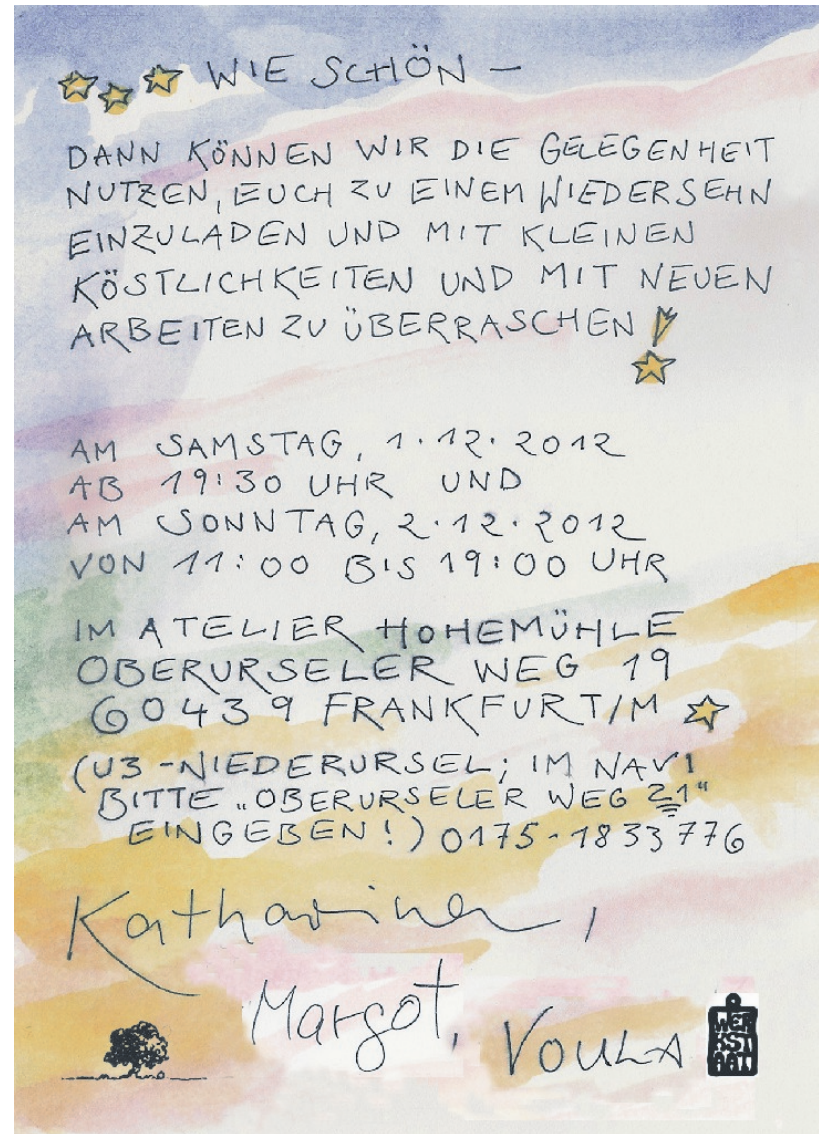 WIE SCHÖN –
DANN KÖNNEN WIR DIE GELEGENHEIT
NUTZEN, EUCH ZU EINEM WIEDERSEHN
EINZULADEN UND MIT KLEINEN
KÖSTLICHKEITEN UND MIT NEUEN
ARBEITEN ZU ÜBERRASCHEN!
AM SAMSTAG, 1.12.2012
AB 19:30 UHR UND
AM SONNTAG, 2.12.2012
VON 11:00 BIS 19:00 UHR
IM ATELIER HOHEMÜHLE
OBERURSELER WEG 19
60439 FRANKFURT/M
(U3-NIEDERURSEL; IM NAVI
BITTE „OBERURSELER WEG 21"
EINGEBEN!) 0175-1833776
Katharina,
Margot,
VOULA
WER
KST